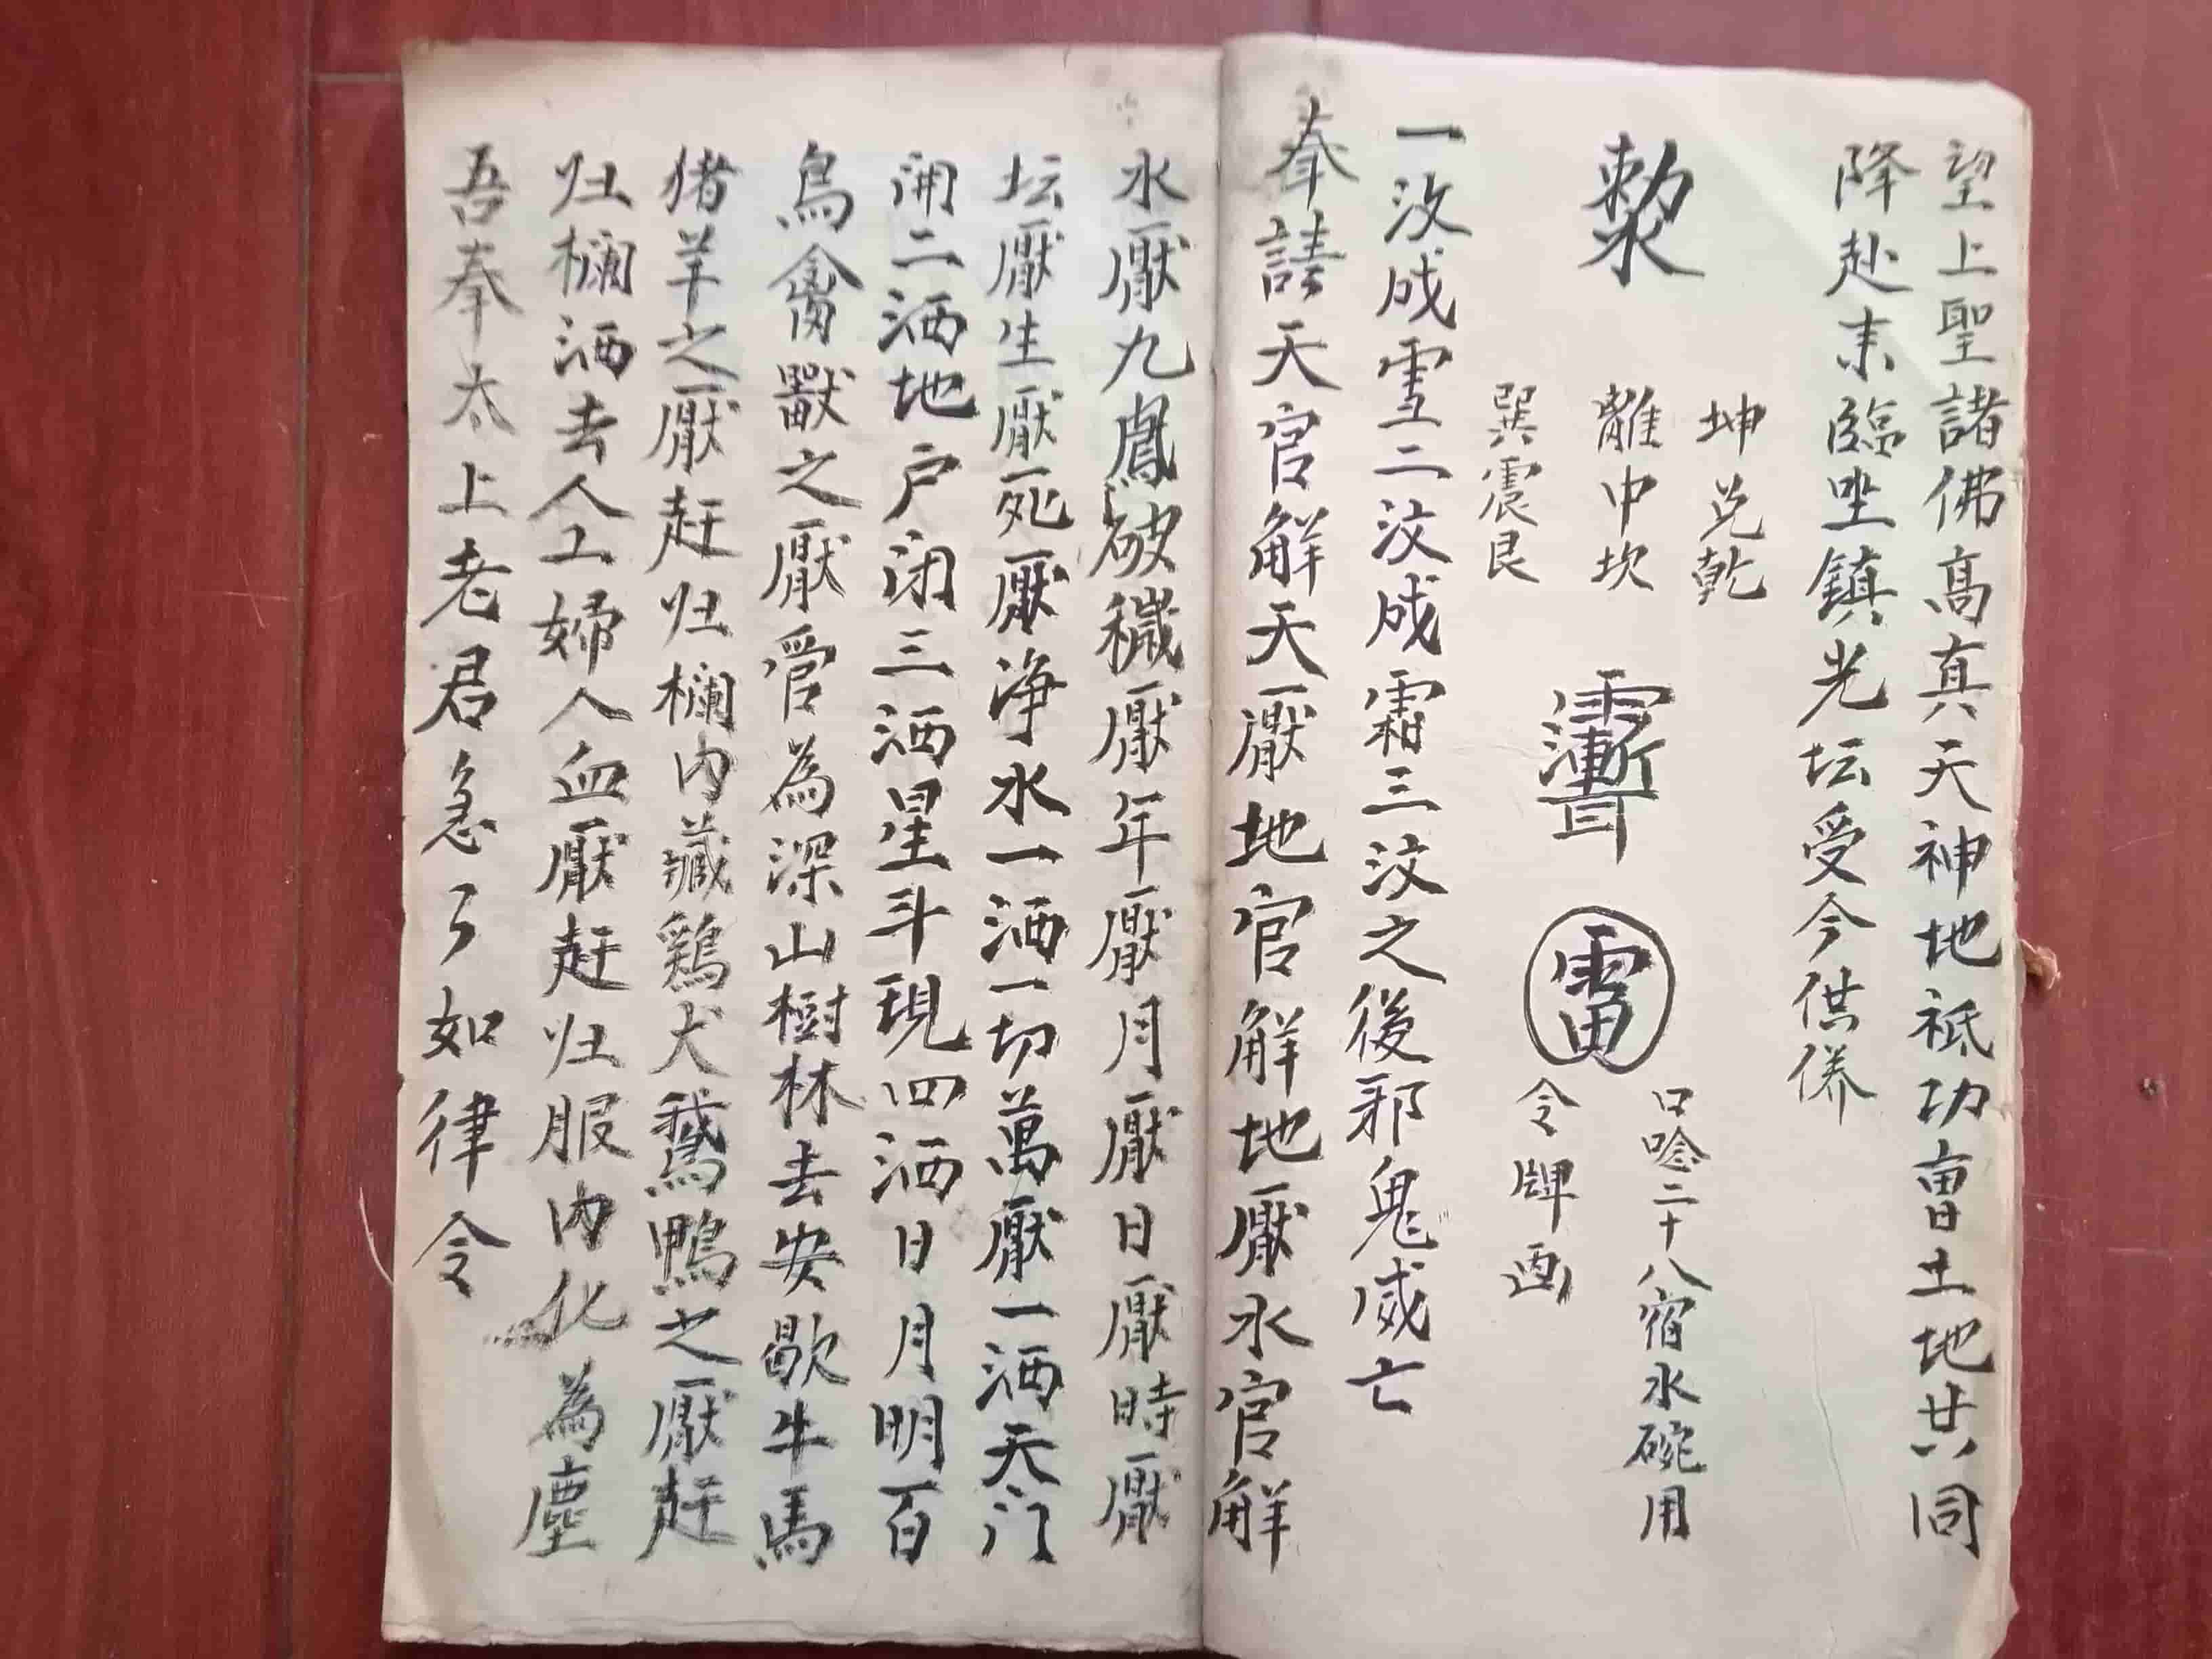 望上聖諸佛高真天神地祇功曹土地共同
降赴來臨坐鎮光坛受今供养
坤兑乾
離中坎
巽震艮
口唸二十八宿水碗用
令牌画
一汶成雪二汶成霜三汶之後邪鬼威亡
奉請天官解天厭地官解地厭水官解
水厭九鳳破穢厭年厭月厭日厭時厭
坛厭生厭死厭净水一洒一切萬厭一洒天门
闭二洒地户闭三洒星斗現四洒日月明百
鳥禽獸之厭管為深山樹林去安歇牛馬
猪羊之厭赶归欄内藏鷄犬鵝鴨之厭赶
归欄洒去人工婦人血厭赶归服内化為塵
吾奉太上老君急々如律令